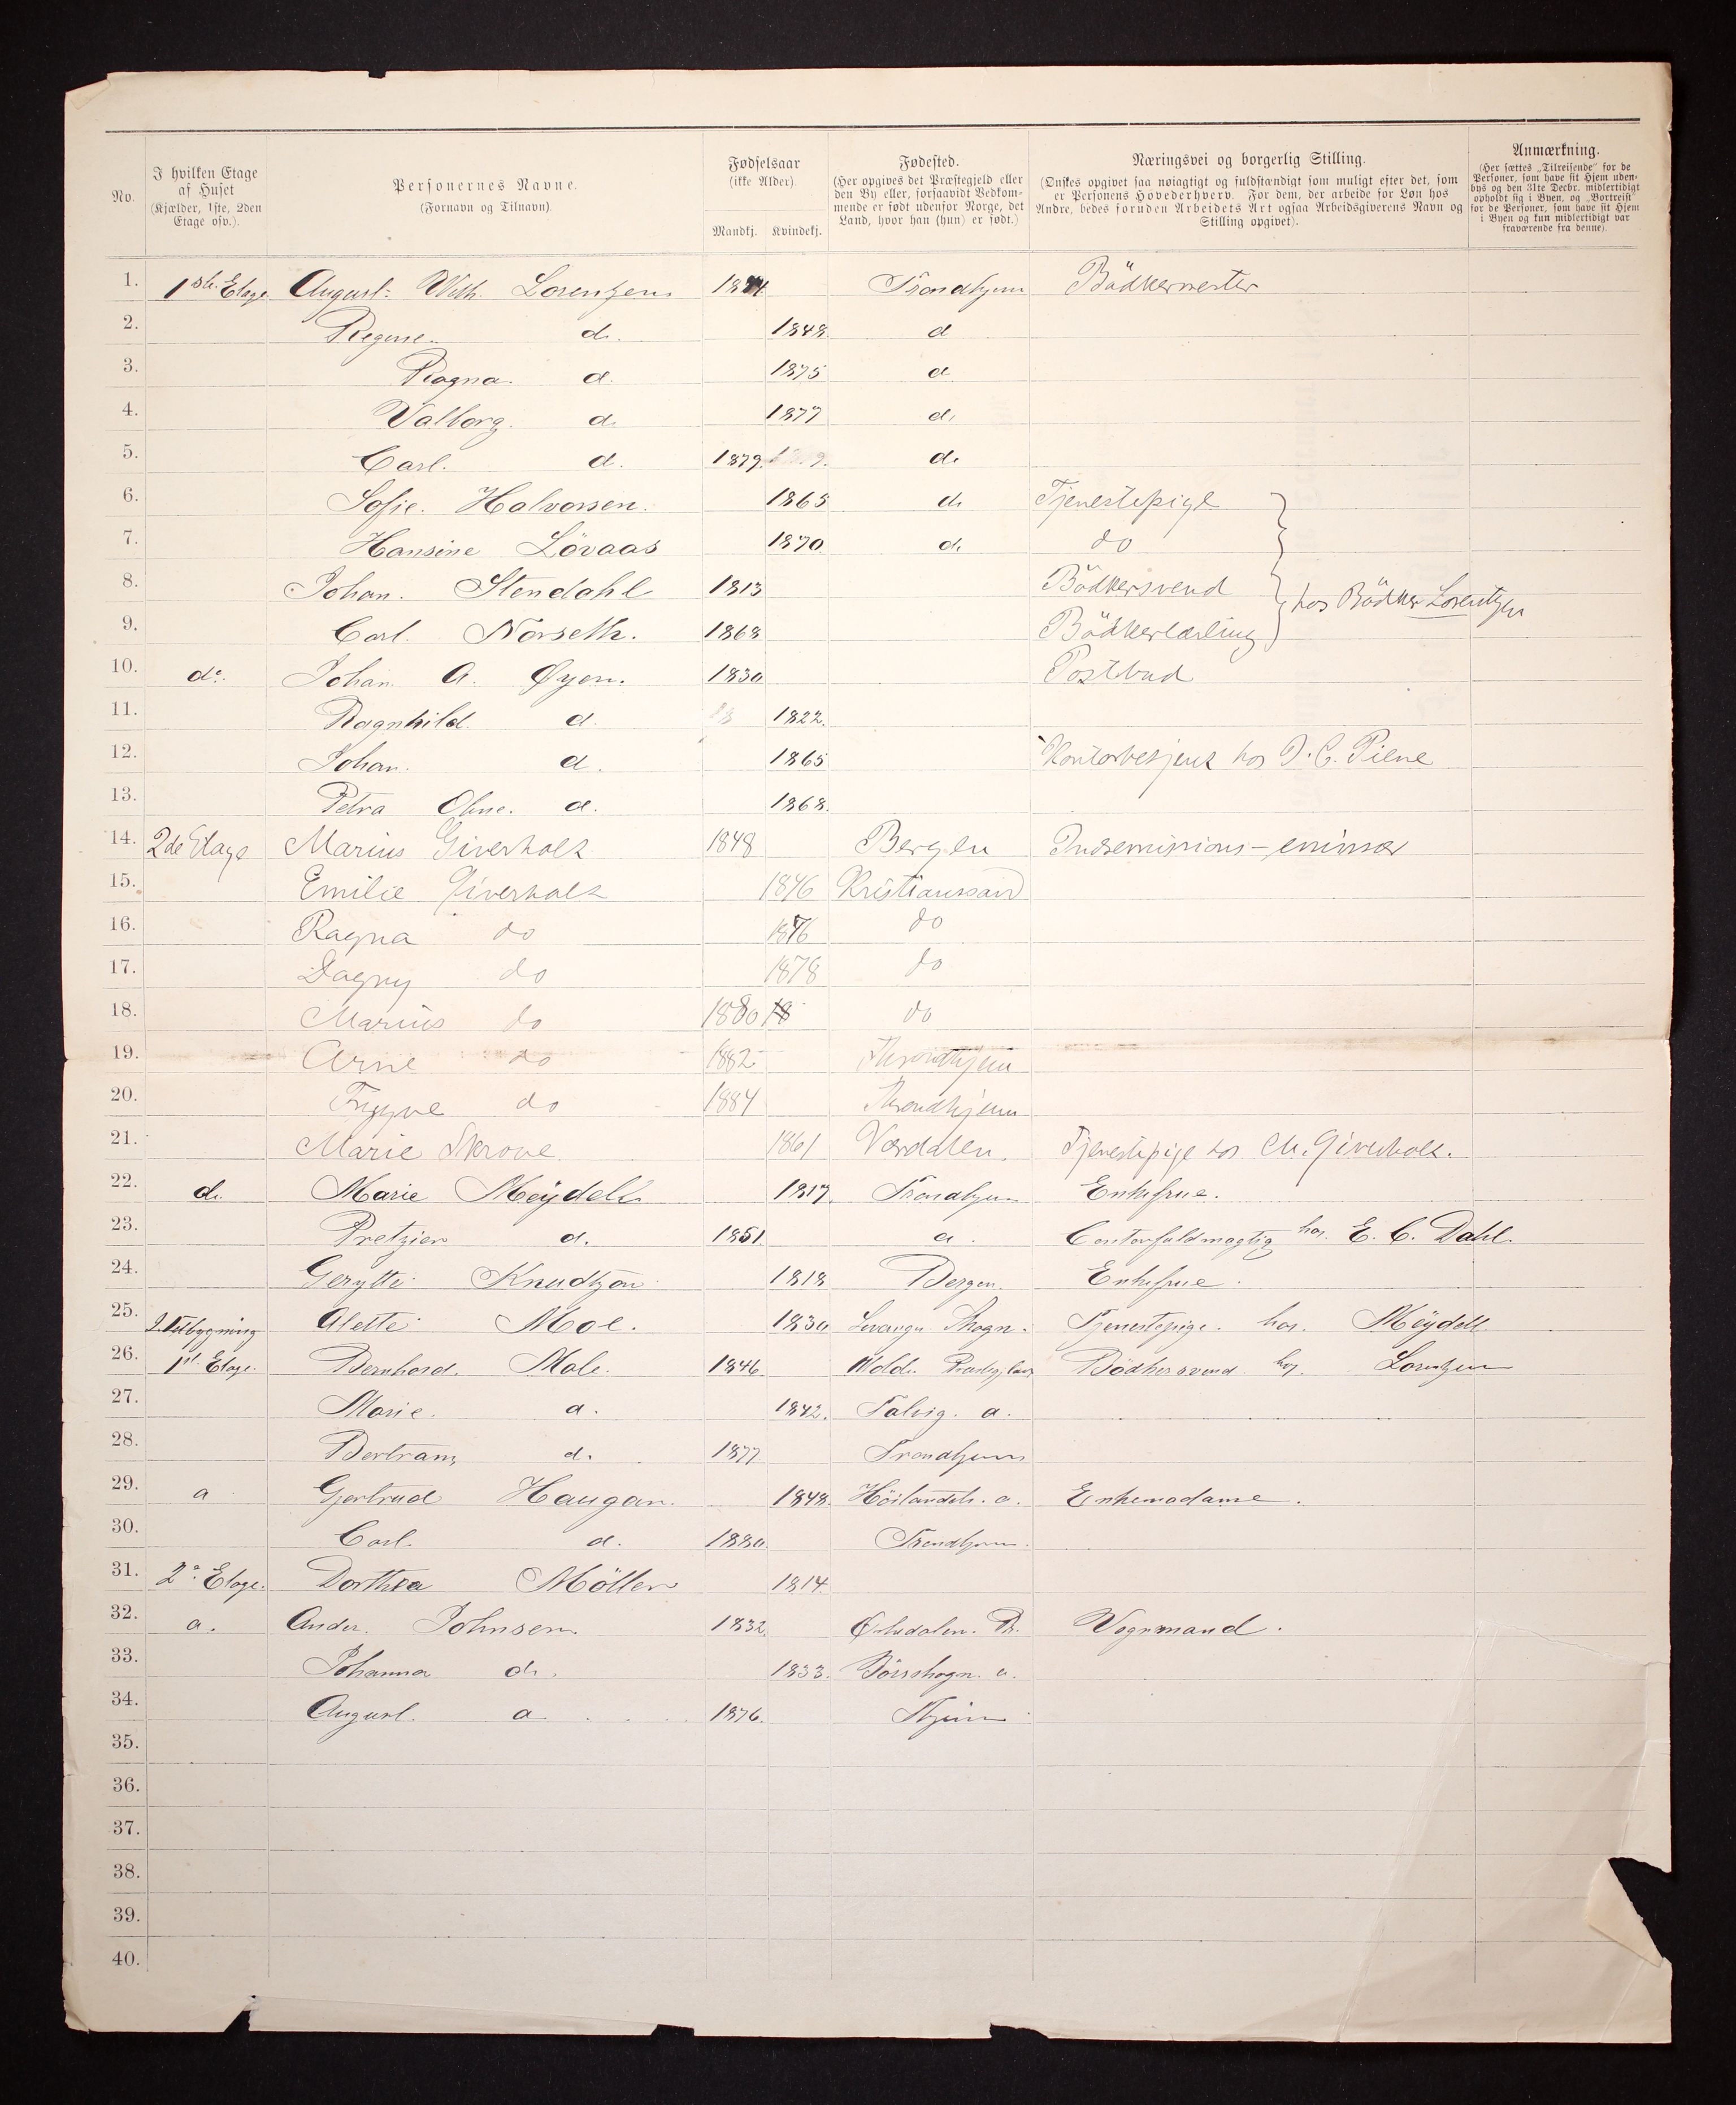 No.
I hvilken Etage af Huset (Kjælder, 1ste, 2den Etage osv.).
Personernes Navne. (Fornavn og Tilnavn).
Fødselsaar (ikke Alder).
Mandkj. Kvindekj.
Fødested. (Her opgives det Præstegjeld eller den By eller, forsaavidt Vedkommende er født udenfor Norge, det Land, hvor han (hun) er født.)
Næringsvei og borgerlig Stilling. (Ønskes opgivet saa nøiagtigt og fuldstændigt som muligt efter det, som er Personens Hovederhverv. For dem, der arbeide for Løn hos Andre, bedes foruden Arbeidets Art ogsaa Arbeidsgiverens Navn og Stilling opgivet).
Anmærkning. (Her sættes „Tilreisende“ for de Personer, som have sit Hjem udenbys og den 31te Decbr. midlertidigt opholdt sig i Byen, og „Bortreist“ for de Personer, som have sit Hjem i Byen og kun midlertidigt var fraværende fra denne).
1. 1ste Etage August Wilh. Lorentzen Trondhjem Bödkermester
2. Regine d. 1848. d
3. Ragna d. 1875 d
4. Valborg d. 1877 d.
5. Carl. d. 1879. d.
6. Sofie. Halvorsen. 1865 d. Tjenestepige
7. Hansine Lövaas 1870 d. do
8. Johan. Stendahl 1813 Bödkersvend hos Bödker Lorentzen
9. Carl. Norseth. 1868 Bödkerlærling
10. do. Johan A. Øyen. 1830 Postbud
11. Ragnhild d. 1822.
12. Johan. d. 1865 Kontorbetjent hos I. C. Piene
13. Petra d. 1868.
14. 2de Etage Marius Giverholt 1848 Bergen
15. Emilie Giverholt 1846 Kristianssand
16. Ragna do 1876 do
17. Dagny do 1878 do
18. Marius do 1880 18 do
19. Arne do 1882 Throndhjem
20. Trygve do 1884 Throndhjem
21. Marie Skrove 1861 Værdalen. Tjenestepige hos M. Giverholt.
22. d. Marie Meÿdell 1817. Trondhjem Enkefrue.
23. Pretzier d. 1851. d. Contorfuldmægtig hos. E. C. Dahl.
24. Gerytte Knudtzon 1818 Bergen Enkefrue.
25. Alette Moe. 1830 Tjenestepige. hos. Meÿdell
26. 1st. Etage. Bernhard. Mole. 1846. Molde Bödkersvend hos. Lorentzen
27. Marie. d. 1842. Talvig. d.
28. Bertram d. 1877 Trondhjem
29. d Gjertrud Haugan. 1848. d. Enkemadame.
30. Carl. d. 1880. Trondhjem.
31. 2. Etage. Dorthea Möller 1814.
32. d. Ander. Johnsen 1832 Vognmand.
33. Johanna d. 1833. Börsskogn. d.
34. August. d 1876. Thjem
35.
36.
37.
38.
39.
40.